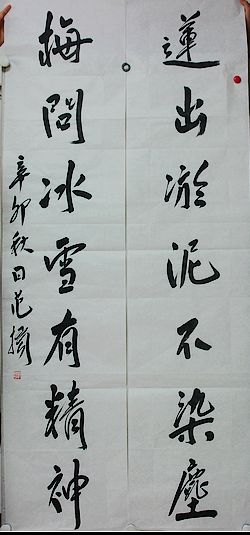 蓮出淤泥不染塵
梅問冰雪有精神
辛卯秋日范攢